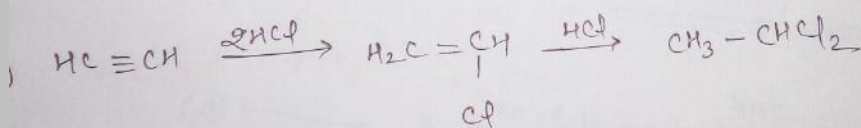 ) HC ≡ CH 2HCl → H₂C = CH HCl → CH₃ - CHCl₂
Cl